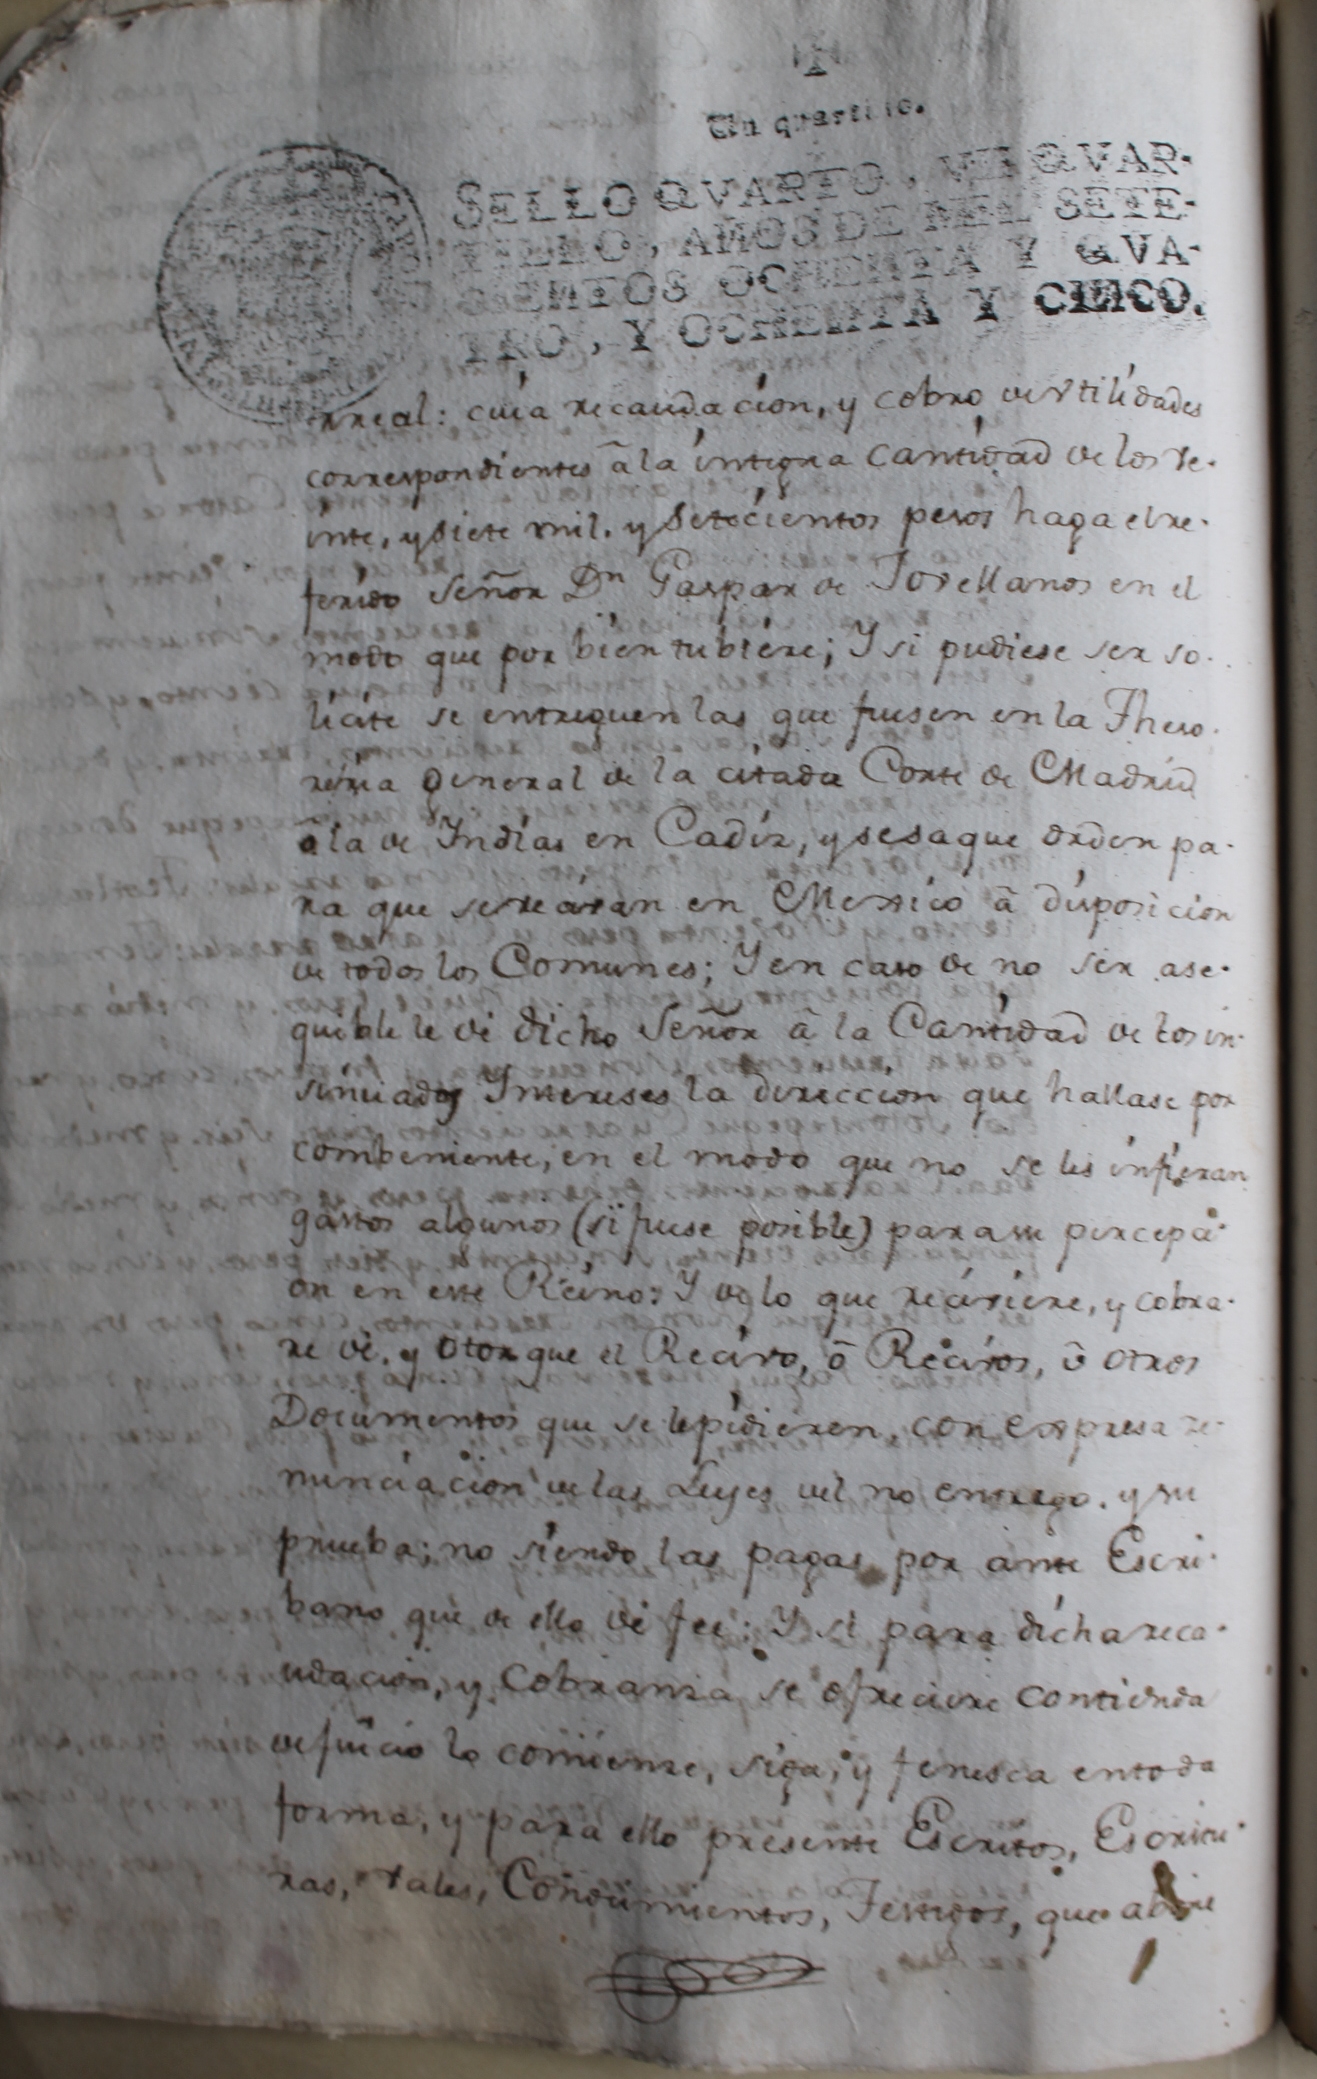 Un quartillo.
SELLO QVARTO, VN QVAR-
TILLO, AÑOS DE MIL SETE-
CIENTOS OCHENTA Y QVA-
TRO, Y OCHENTA Y CINCO.
rreal: cuia recaudacion, y cobro de vtilidades
correspondientes â la integra Cantidad de los ve-
inte, y siete mil, y Setecientos pesos haga el re-
ferido Señor Dn Gaspar de Jovellanos en el
modo que por bien tubiere; Y si pudiese ser so-
licite se entreguen las que fuesen en la Theso-
reria General de la citada Corte de Madrid
a la de Indias en Cadiz, y se saque orden pa-
ra que se reciban en Mexico â disposicion
de todos los Comunes; Y en caso de no ser ase-
quible le dé dicho Señor â la Cantidad de los in-
sinuados Intereses la direccion que hallase por
combeniente, en el modo que no se les infieran
gastos algunos (si fuese posible) para su percepci-
on en este Reino: Y de lo que reciviere, y cobra-
re dé, y otorgue el Recivo, ô Recivos, û otros
Documentos que se le pidieren, con expresa re-
nunciacion de las Leyes del no entrego, y su
prueba; no siendo las pagas por ante Escri-
bano que de ello dé feé: Y si para dicha reca-
udacion, y Cobranza se ofreciere contienda
de juicio lo comienze, siga, y fenesca en toda
forma, y para ello presente Escritos, Escritu-
ras, Vales, Conosimientos, Testigos, que